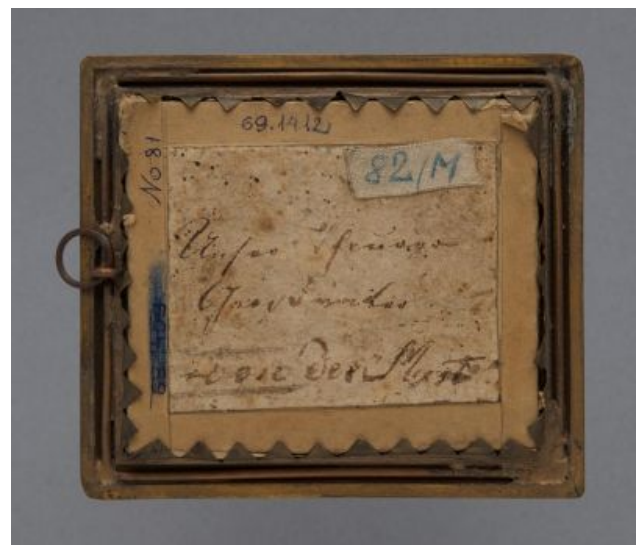 69.1412
No 81
82/M
Unser Theurer
Großvater
von der